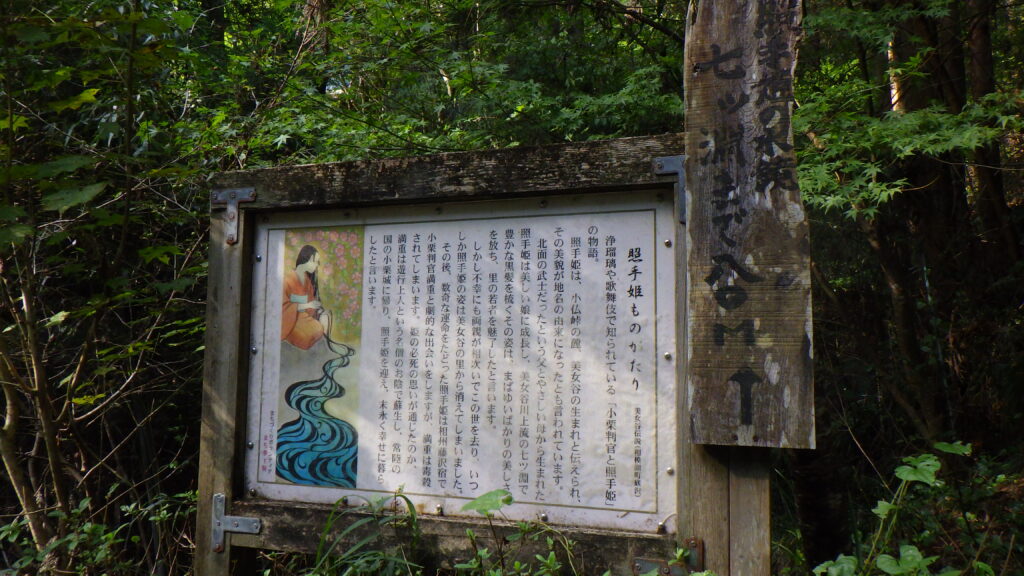 照手姫ものがたり
美女谷伝説(相模湖町底沢)
浄瑠璃や歌舞伎で知られている「小栗判官と照手姫」
の物語。
照手姫は、小仏峠の麓、美女谷の生まれと伝えられ、
その美貌が地名の由来になったとも言われています。
北面の武士だったという父とやさしい母から生まれた
照手姫は美しい娘に成長し、美女谷川上流の七ツ淵で
豊かな黒髪を梳くその姿は、まばゆいばかりの美しさ
を放ち、里の若者を魅了したと言います。
しかし不幸にも両親が相次いでこの世を去り、いつ
しか照手姫の姿は美女谷の里から消えてしまいました。
その後、数奇な運命をたどった照手姫は相州藤沢宿で
小栗判官満重と劇的な出会いをしますが、満重は毒殺
されてしまいます。姫の必死の思いが通じたのか、
満重は遊行上人という名僧のお陰で蘇生し、常陸の
国の小栗城に帰り、照手姫を迎え、末永く幸せに暮ら
したと言います。
七ツ淵まで八〇M
↑